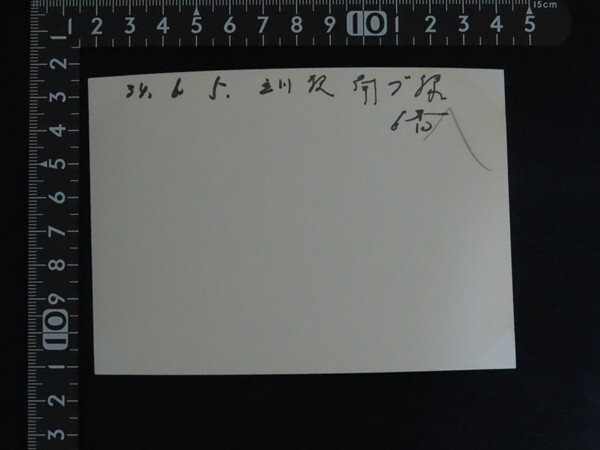 1 2 3 4 5 6 7 8 9 10 1 2 3 4 5 15cm
34. 6. 5. 立川駅
6番
2
3
4
5
6
7
8
9
10
1
2
3